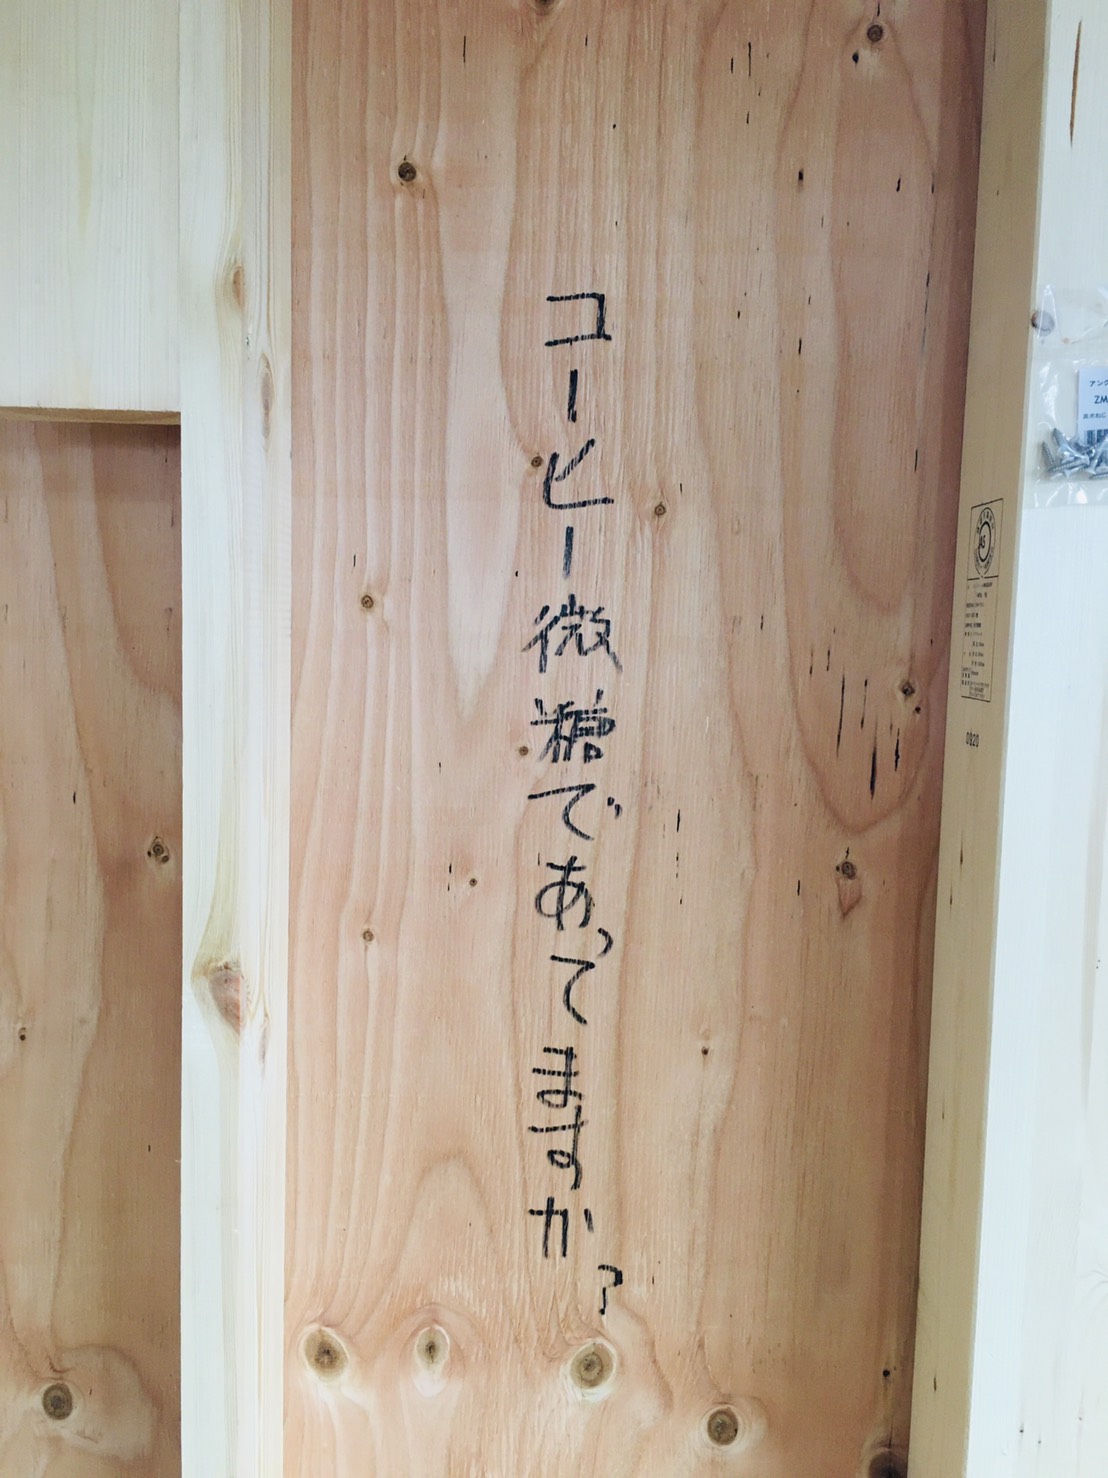 コーヒー微糖であってますか?
アング
ZM
0820